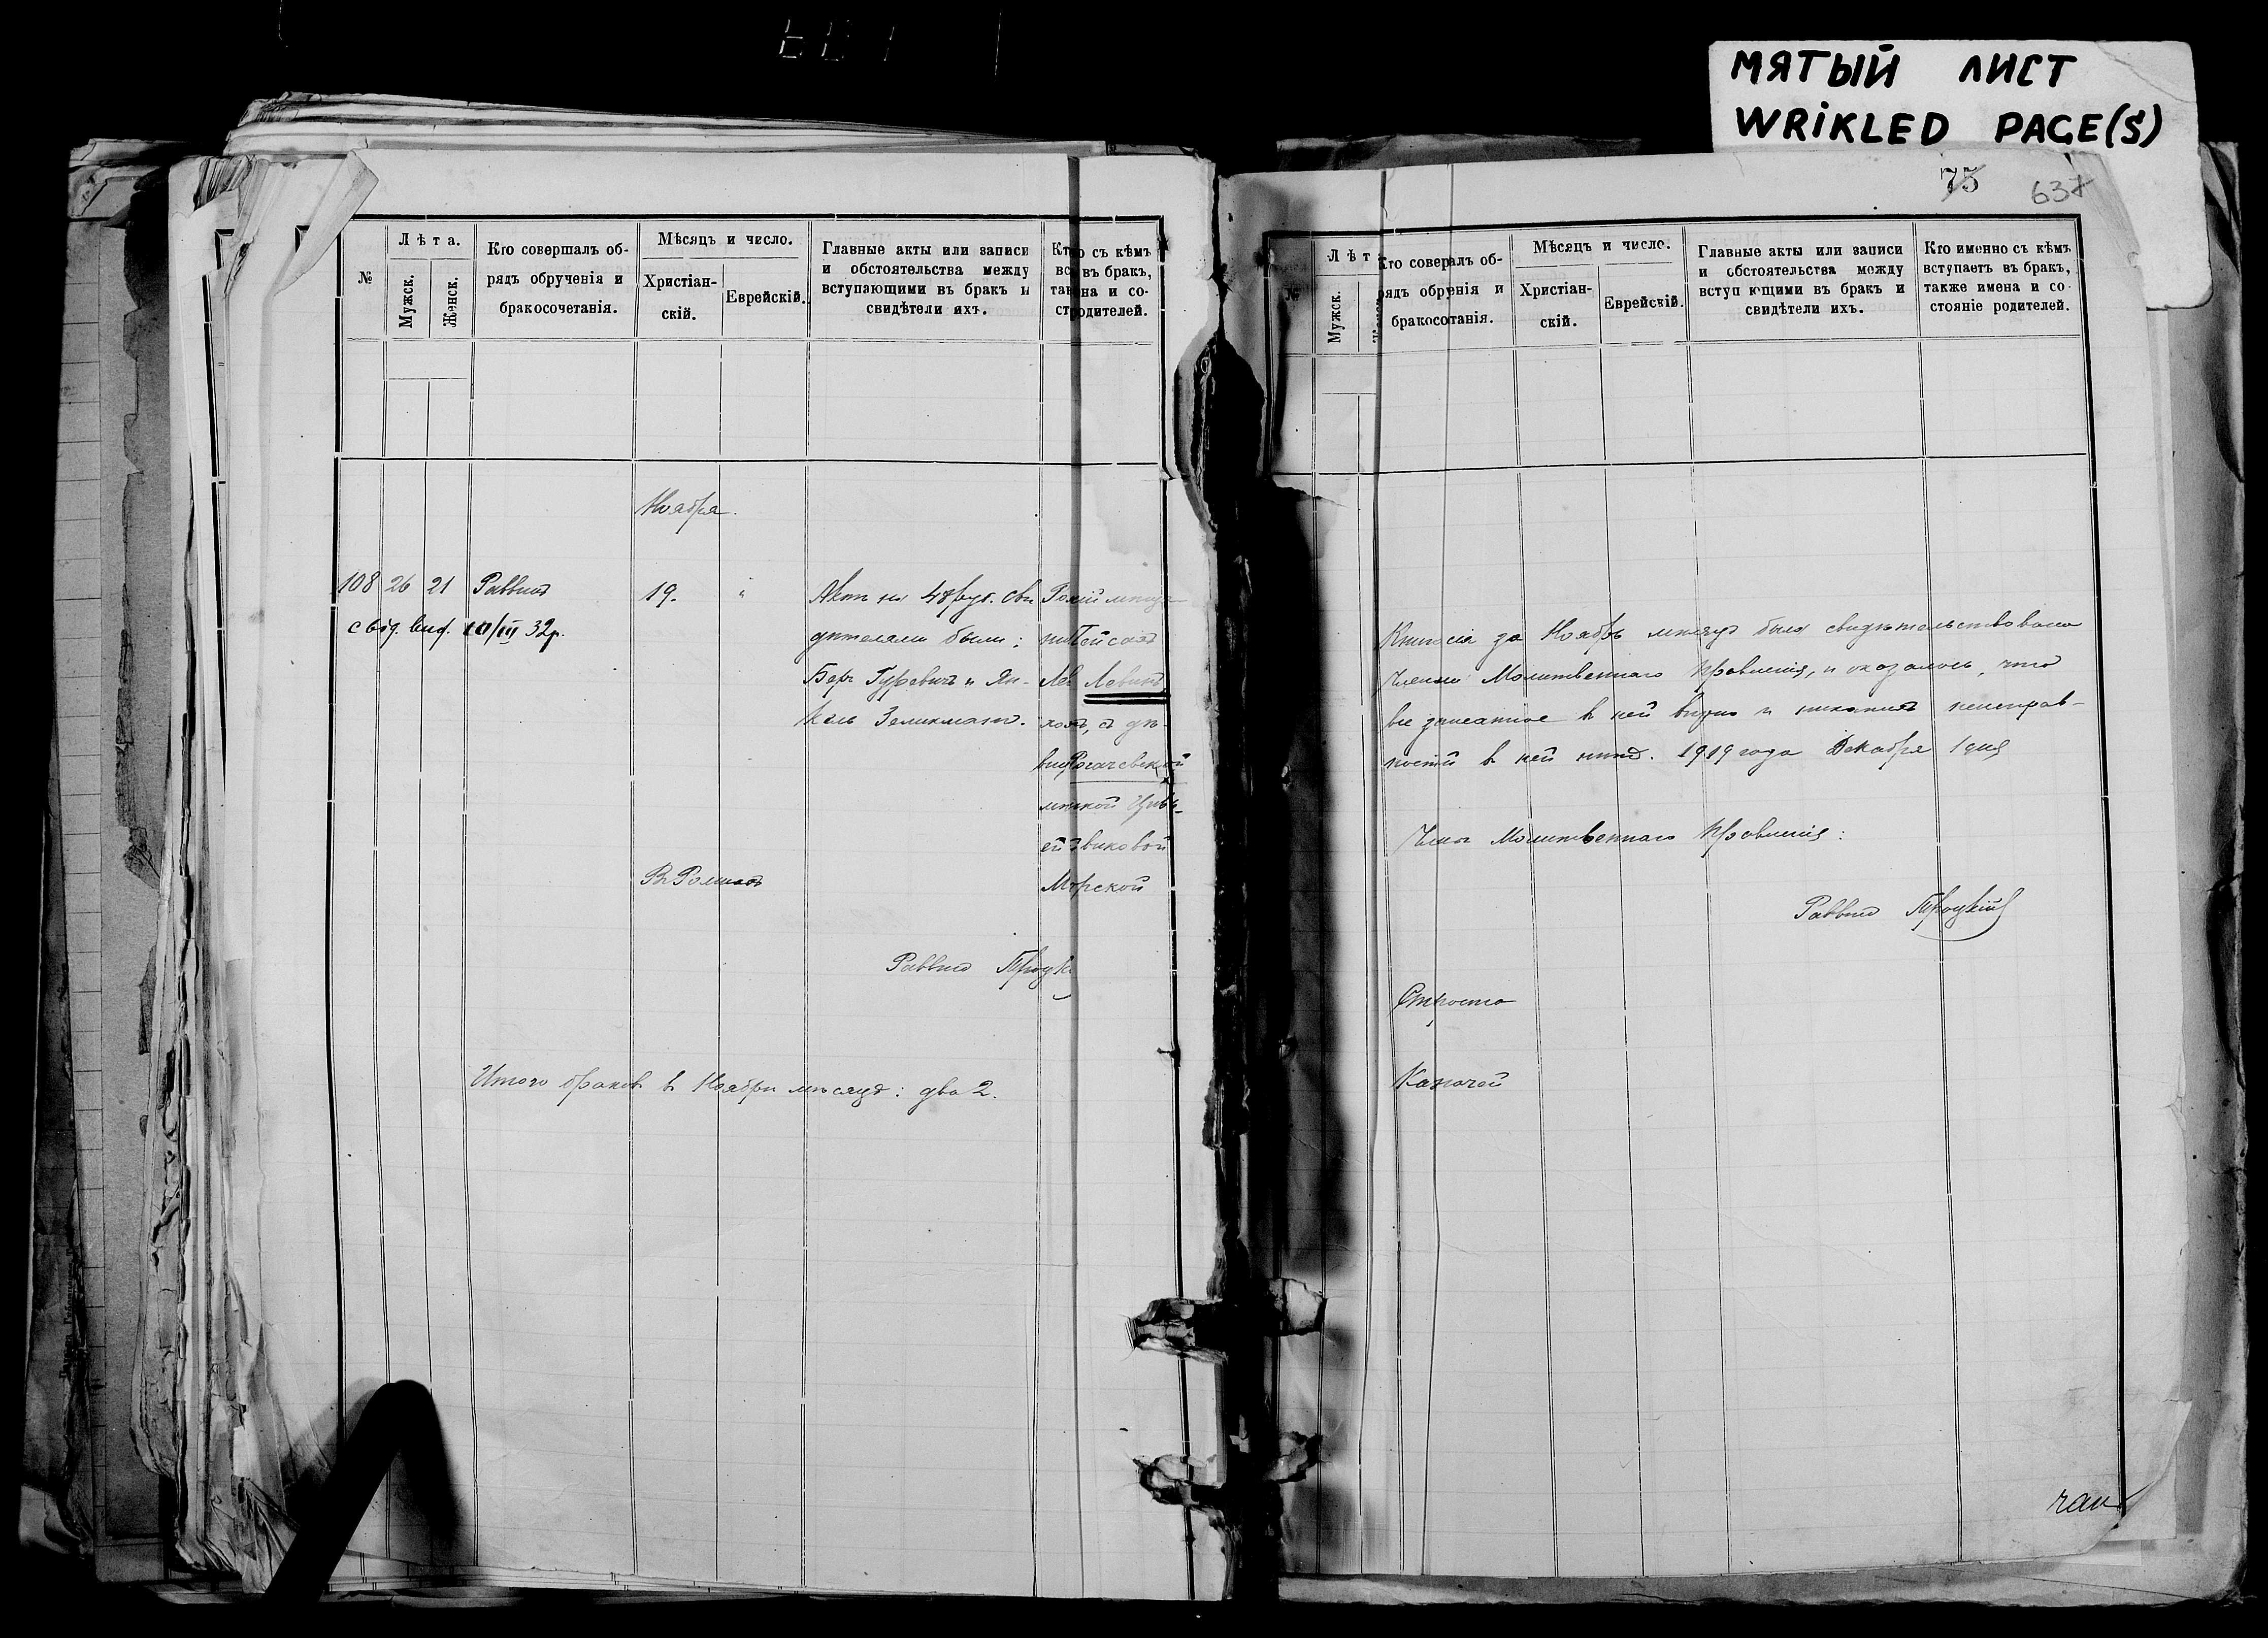 МЯТЫЙ ЛИСТ
WRIKLED PAGE(S)
75
637
№
Лѣта.
Мужск.
Женск.
Кто совершалъ об-
рядъ обрученія и
бракосочетанія.
Мѣсяцъ и число.
Христіан-
скій.
Еврейскій.
Главные акты или записи
и обстоятельства между
вступающими въ бракъ и
свидѣтели ихъ.
съ кѣмъ
въ бракъ,
на и со-
родителей.
Ноября.
108 26 21 Раввинъ 19. " Актъ на 48 руб. Сви
свід. вид. 10/III 32р.
дѣтелями были:
Беръ Гуревичъ и Ян-
кель Зеликманъ.
Левинъ
съ дѣ-
Рогачевской
Морской
Въ Ромнахъ
Раввинъ Троцк
Итого браковъ въ Ноябрѣ мѣсяцѣ: два 2.
№
Лѣт
Мужск.
Кто совер алъ об-
рядъ обру нія и
бракосо танія.
Мѣсяцъ и число.
Христіан-
скій.
Еврейскій.
Главные акты или записи
и обстоятельства между
вступ ющими въ бракъ и
свидѣтели ихъ.
Кто именно съ кѣмъ
вступаетъ въ бракъ,
также имена и со-
стояніе родителей.
за Ноябрь мѣсяцъ была свидѣтельствована
Членами Молитвеннаго Правленія, и оказалось, что
все записанное въ ней вѣрно и никакихъ неисправ-
ностей въ ней нѣтъ. 1919 года Декабря 1 дня
Члены Молитвеннаго Правленія:
Раввинъ Троцкій
Староста
Казначей